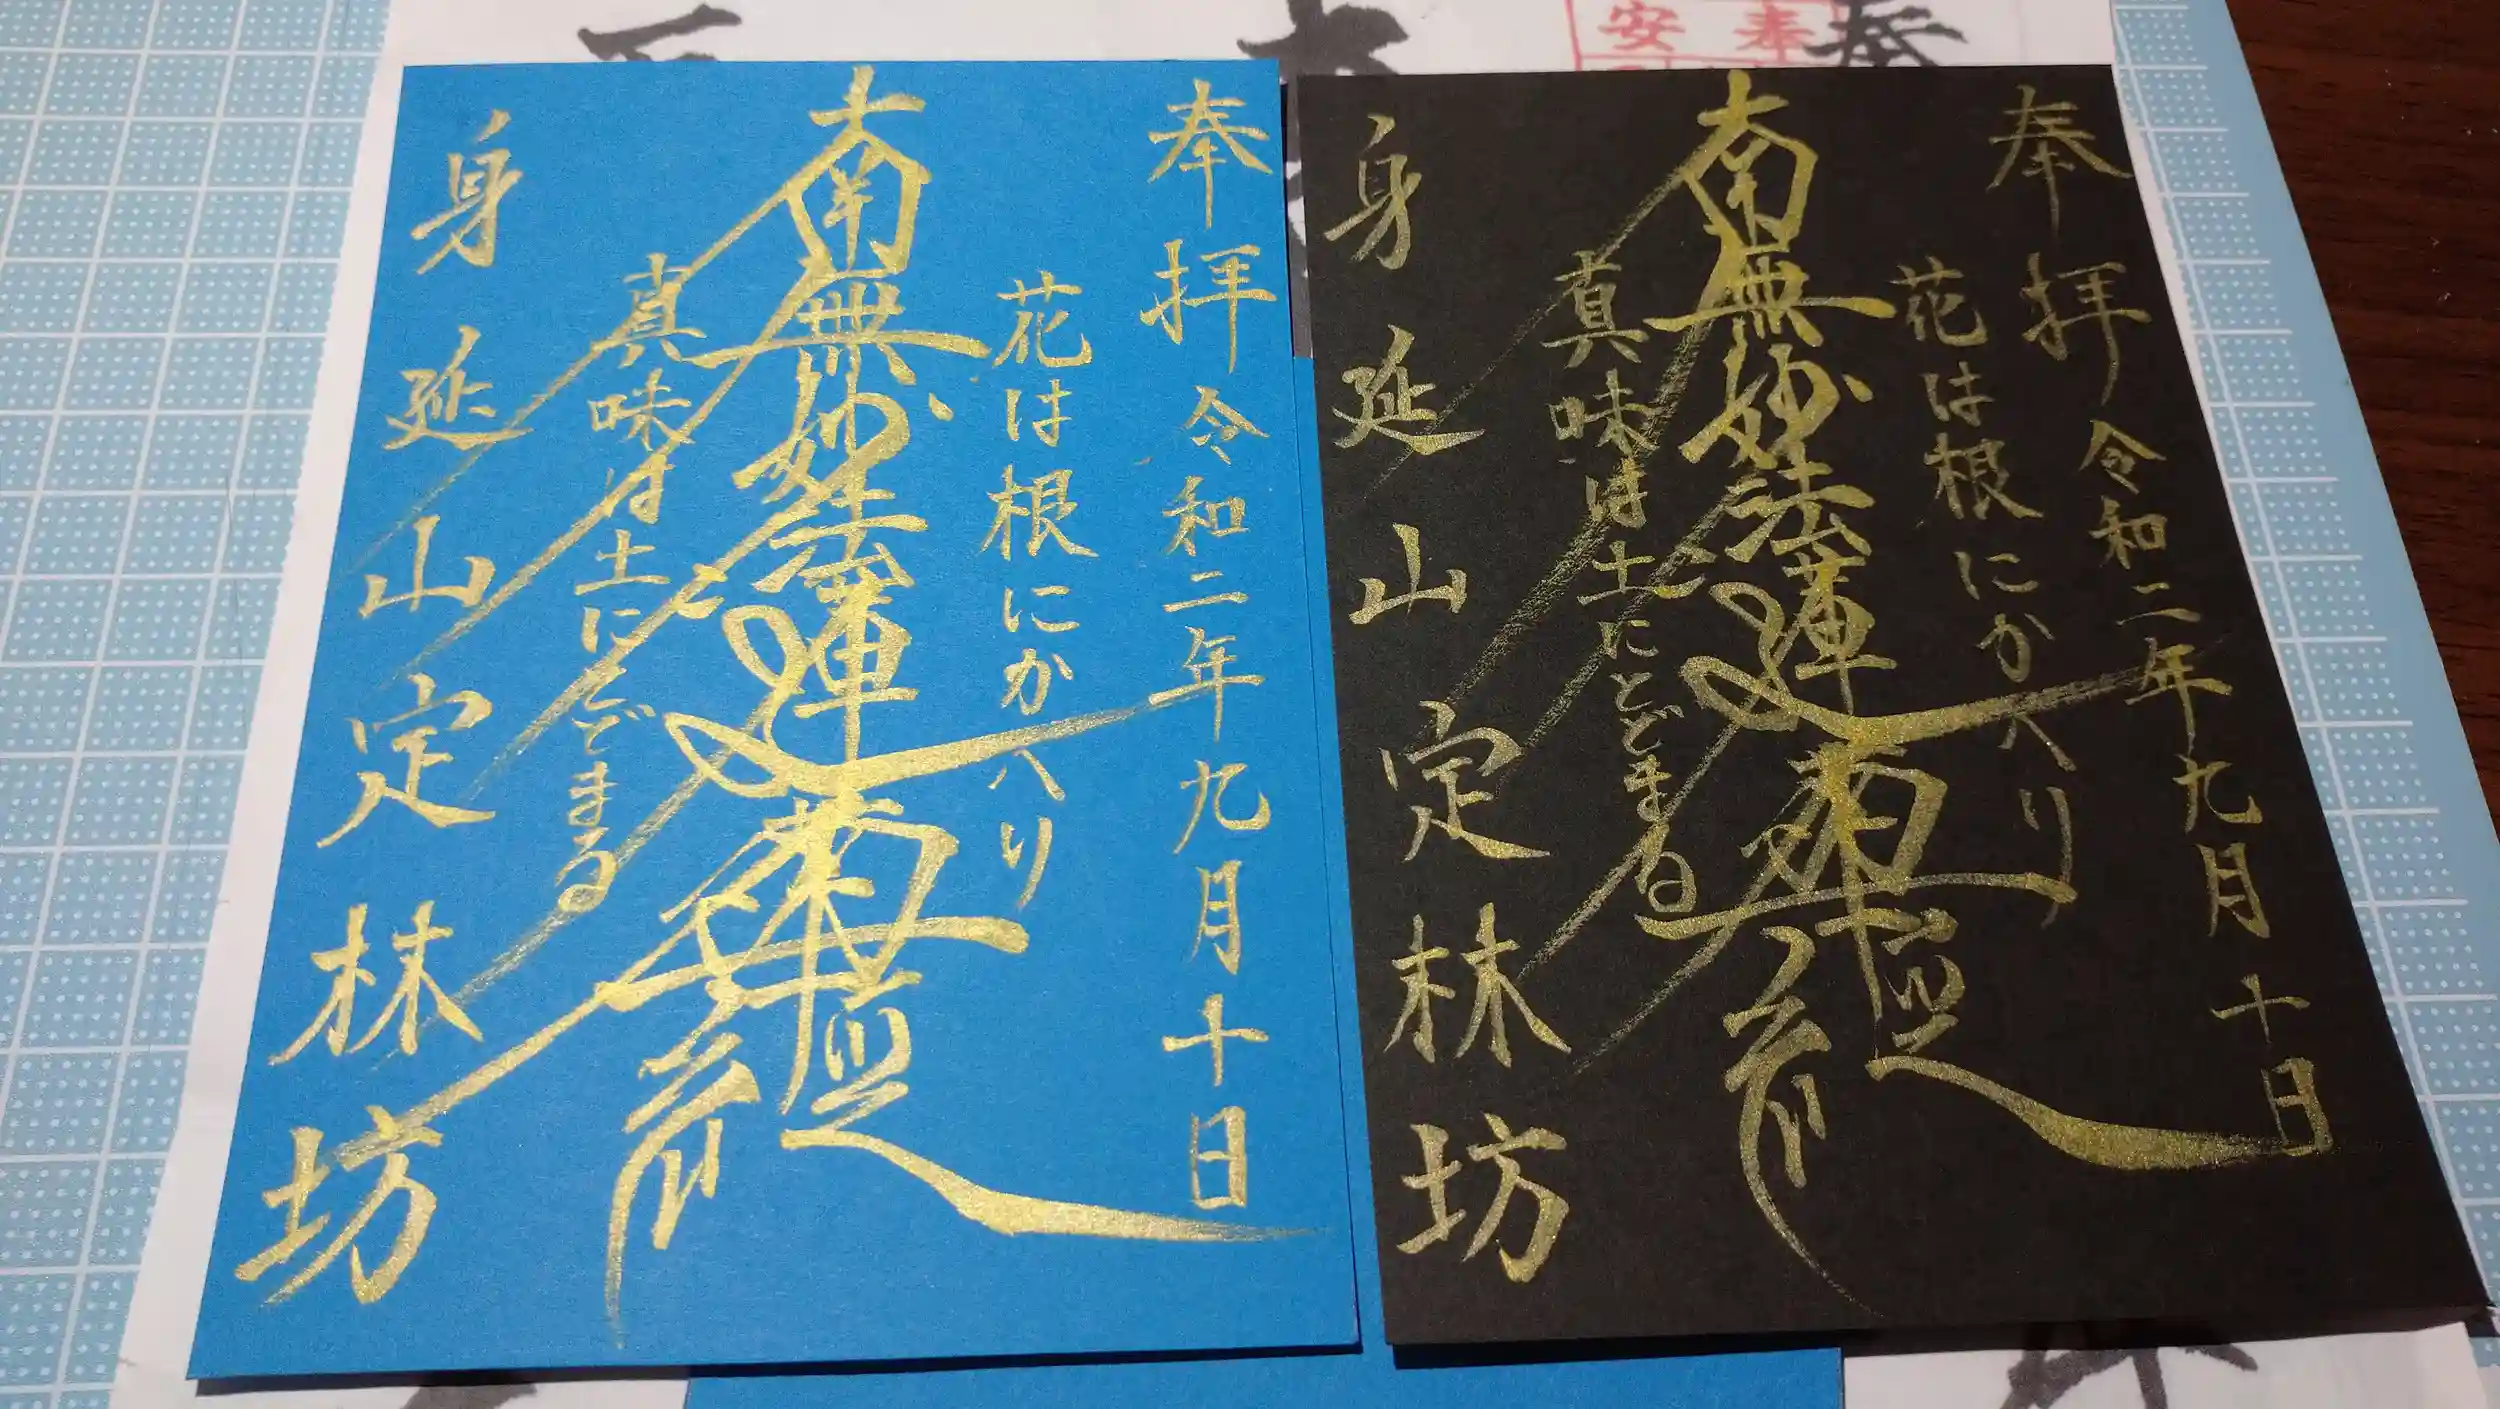 奉拝 令和二年九月十日
花は根にかへり
南無妙法蓮華經
真味は土にとどまる
身延山定林坊
奉拝 令和二年九月十日
花は根にかへり
南無妙法蓮華經
真味は土にとどまる
身延山定林坊
奉
安